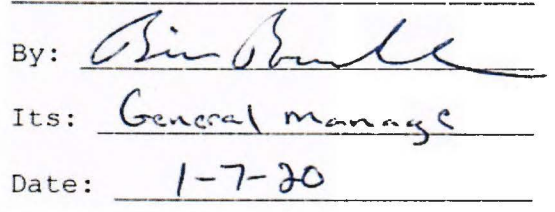 By:
Its: General Manage
Date: 1-7-20